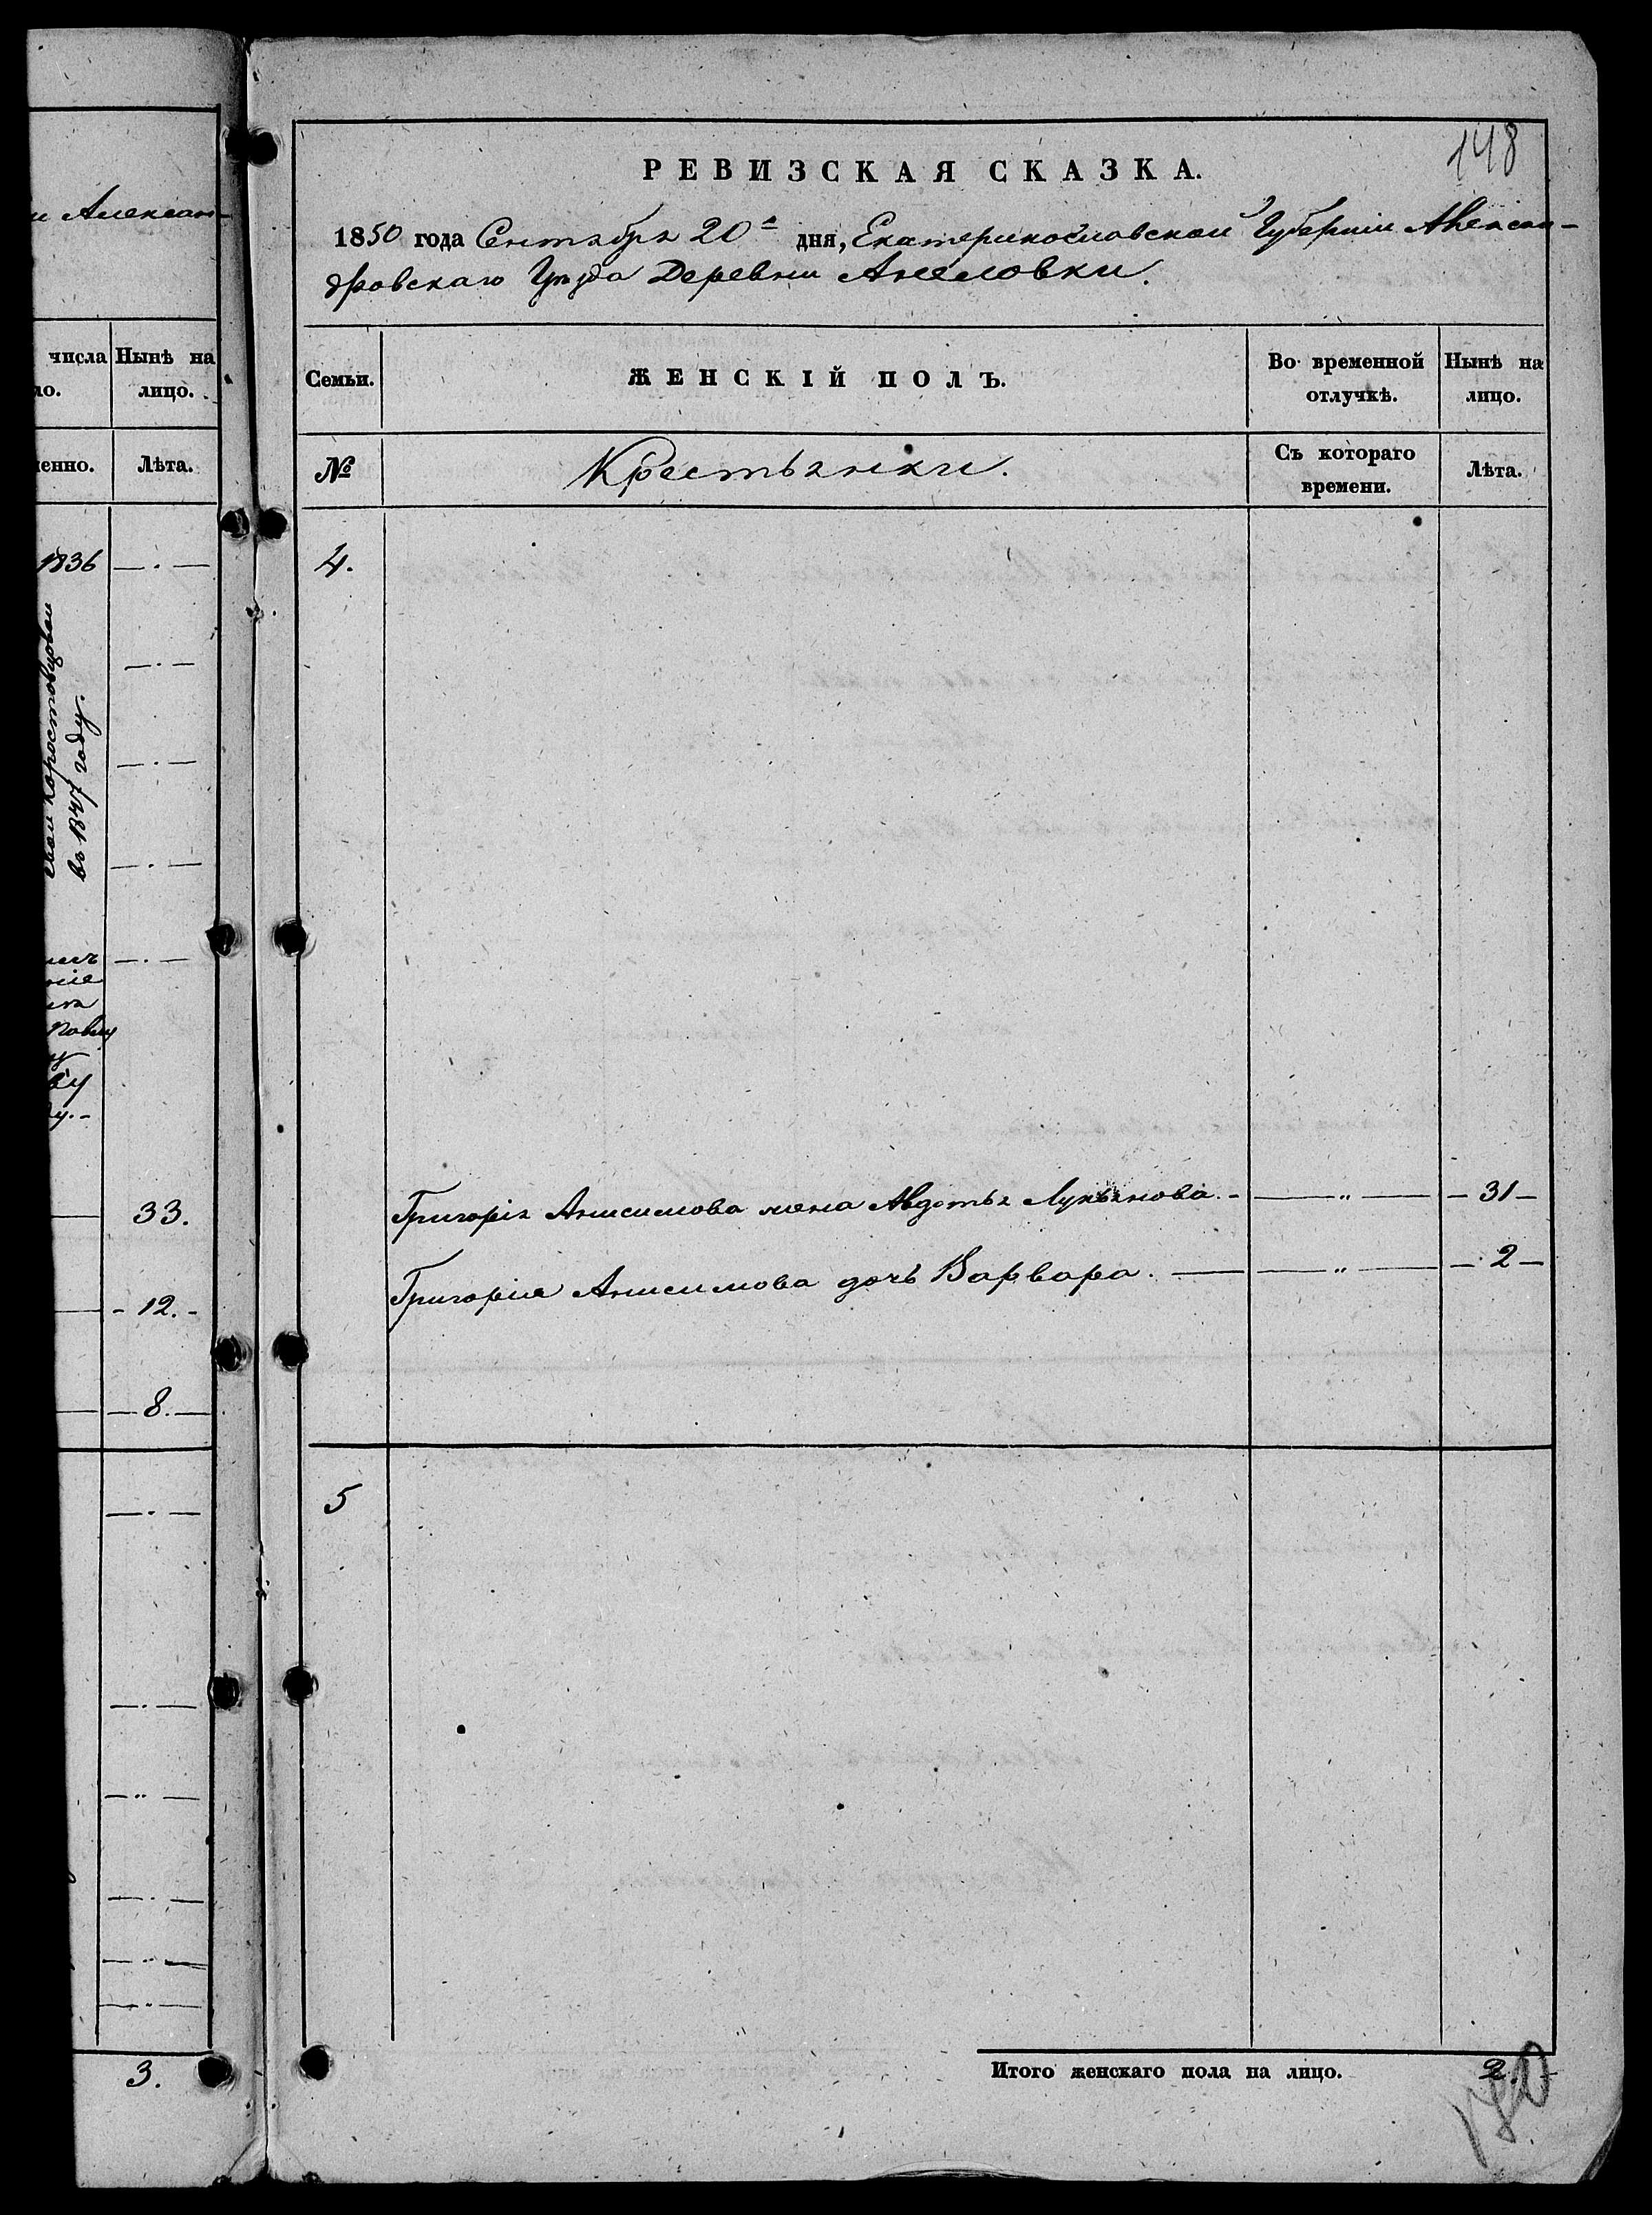 и Алексан-
числа Нынѣ на
лицо.
Лѣта.
1836
въ 1847 году.
33.
- 12. -
8.
3.
148
РЕВИЗСКАЯ СКАЗКА.
1850 года Сентября 20 дня, Екатеринославской Губерніи Алексан-
дровскаго Уѣзда Деревни Анеловки.
Семьи. ЖЕНСКІЙ ПОЛЪ. Во временной отлучкѣ. Нынѣ на лицо.
№ Крестьянки. Съ котораго времени. Лѣта.
4.
Григорія Анисимова жена Авдотья Лукьянова. - — „ — - 31 -
Григорія Анисимова дочь Варвара. — — „ — - 2 -
5
Итого женскаго пола на лицо. 2.